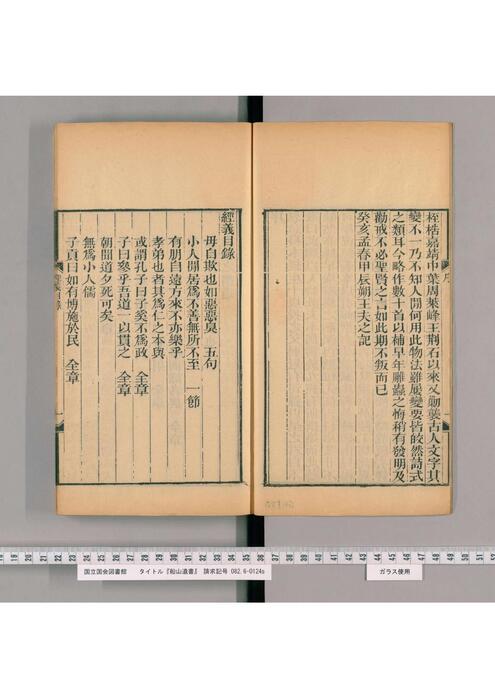 桎梏嘉靖中葉周萊峰王荊石以來又勦襲古人文字其
變不一乃不知人閒何用此物法雖屢變要皆皎然詩式
之類耳今略作數十首以補早年雕蟲之悔稍有發明及
勸戒不必聖賢之言如此期不叛而已
癸亥孟春甲辰朔王夫之記
序
經義目錄
毋自欺也如惡惡臭 五句
小人閒居爲不善無所不至 一節
有朋自遠方來不亦樂乎
孝弟也者其爲仁之本與
或謂孔子曰子奚不爲政 全章
子曰參乎吾道一以貫之 全章
朝聞道夕死可矣
無爲小人儒
子貢曰如有博施於民 全章
22 23 24 25 26 27 28 29 30 31 32 33 34 35 36 37 38 39 40 41 42 43 44 45 46 47 48 49 50 51 52
国立国会図書館 タイトル『船山遺書』 請求記号 082.6-0124s
ガラス使用